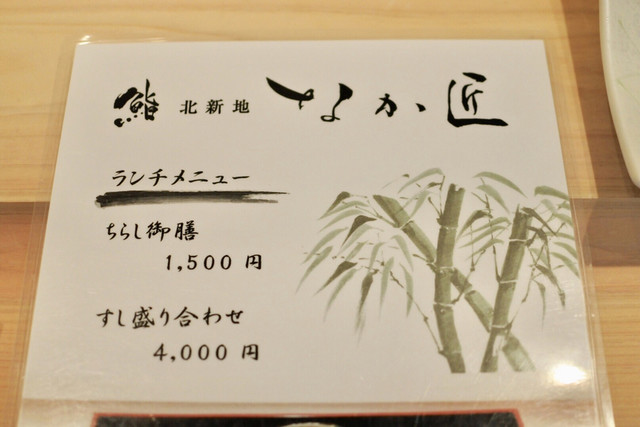 鮨 北新地 なか匠
ランチメニュー
ちらし御膳
1,500 円
すし盛り合わせ
4,000 円